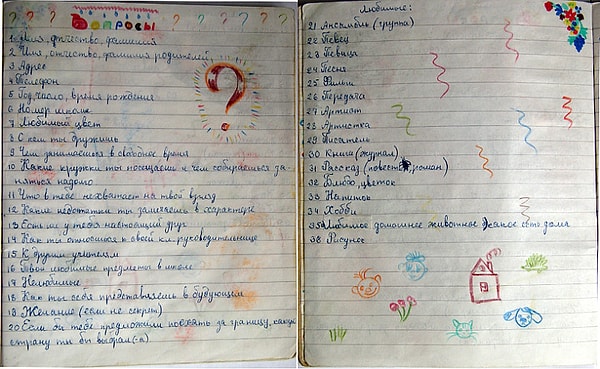 Вопросы
1 Имя, отчество, фамилия
2 Имя, отчество, фамилия родителей
3 Адрес
4 Телефон
5 Год, число, время рождения
6 Номер школы
7 Любимый цвет
8 С кем ты дружишь
9 Чем занимаешся в свободное время
10 Какие кружки ты посещаеш и чем собираешься за-
няться надолго
11 Что в тебе нехватает на твой взгляд
12 Какие недостатки ты замечаешь в характере
13 Есть ли у тебя настоящий друг
14 Как ты относишься к своей кл. руководительнице
15 К другим учителям
16 Твои любимые предметы в школе
17 Нелюбимые
18 Как ты себя представляешь в будующем
19 Желание (если не секрет)
20 Если бы тебе предложили поехать за границу, какую
страну ты бы выбрал(-а)
Любимые:
21 Ансамбль (группа)
22 Певец
23 Певица
24 Песня
25 Фильм
26 Передача
27 Артист
28 Артистка
29 Писатель
30 Книга (журнал)
31 Рассказ (повесть, роман)
32 Блюдо, цветок
33 Напиток
34 Хобби
35 Любимое домашнее животное Есть ли оно дома
36 Рисунок